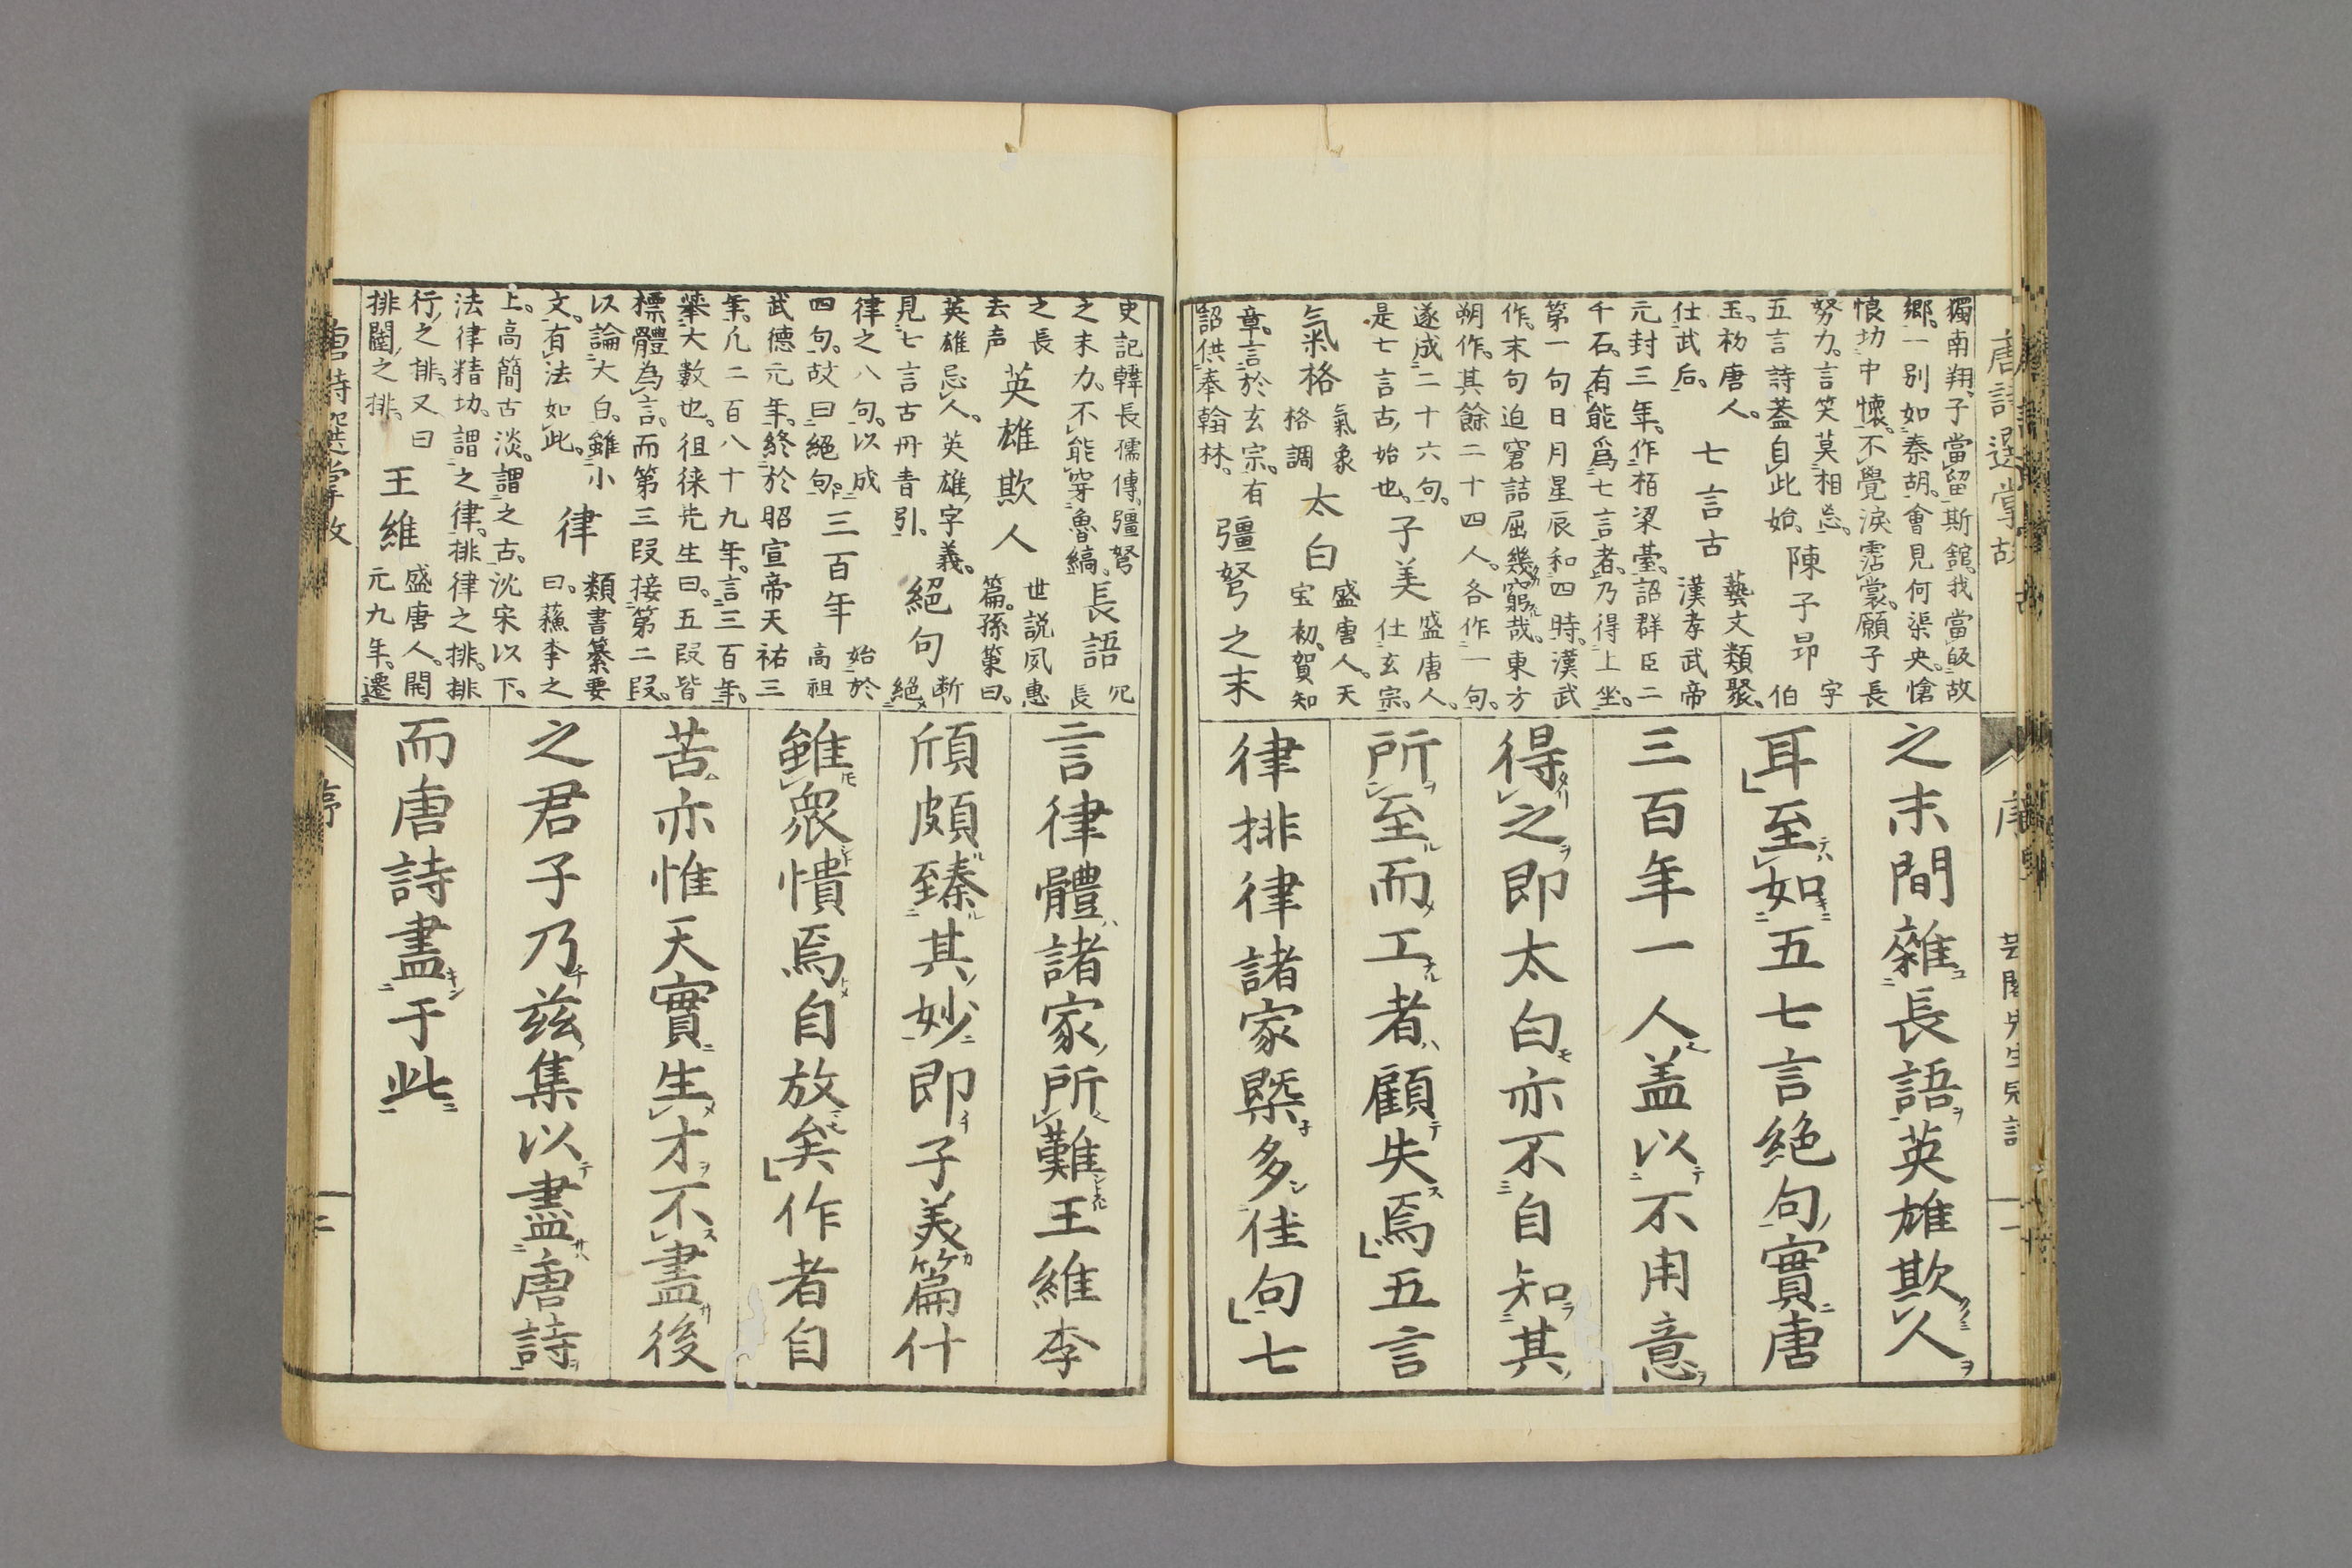 唐詩選掌故
獨南翔子當留斯舘我當皈故
鄉一別如秦胡會見何渠央愴
悢切中懷不覺淚霑裳願子長
努力言笑莫相忘 陳子昂 字
五言詩蓋自此始 伯
玉初唐人 七言古 藝文類聚
仕武后 漢孝武帝
元封三年作栢梁臺詔群臣二
千石有能爲七言者乃得上坐
第一句日月星辰和四時漢武
作末句迫窘詰屈幾窮哉東方
朔作其餘二十四人各作一句
遂成二十六句 子美 盛唐人
是七言古始也 仕玄宗
氣格 氣象 太白 盛唐人天
格調 宝初賀知
章言於玄宗有 彊弩之末
詔供奉翰林
序
芸閣先生兒訂
一
之末間雜長語英雄欺人
耳至如五七言絶句實唐
三百年一人盖以不用意
得之即太白亦不自知其
所至而工者顧失焉五言
律排律諸家槩多佳句七
史記韓長孺傳彊弩 長語 冗
之末力不能穿魯縞 長
之長 英雄欺人 世説夙惠
去声 篇孫策曰
英雄忌人英雄字義 絕句 斷
見七言古丹青引 絶
律之八句以成 三百年 始於
四句故曰絕句 高祖
武德元年終於昭宣帝天祐三
年凡二百八十九年言三百年
舉大數也徂徠先生曰五段皆
標體為言而第三段接第二段
以論大白雖小 律 類書纂要
文有法如此 曰蘇李之
上高簡古淡謂之古沈宋以下
法律精切謂之律排律之排排
行之排又曰 王維 盛唐人開
排闥之排 元九年遷
言律體諸家所難王維李
頎頗臻其妙即子美篇什
雖衆憒焉自放矣作者自
苦亦惟天實生才不盡後
之君子乃兹集以盡唐詩
而唐詩盡于此
唐詩選掌故
序
二